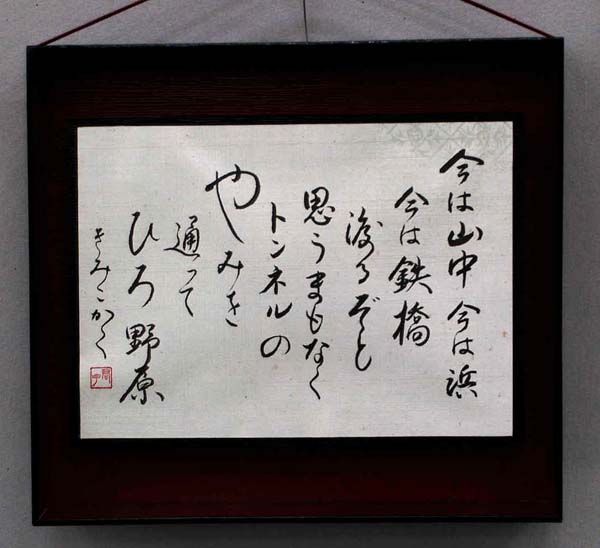 今は山中 今は浜
今は鉄橋
渡るぞと
思うまもなく
トンネルの
やみを
通って
ひろ野原
きみこかく